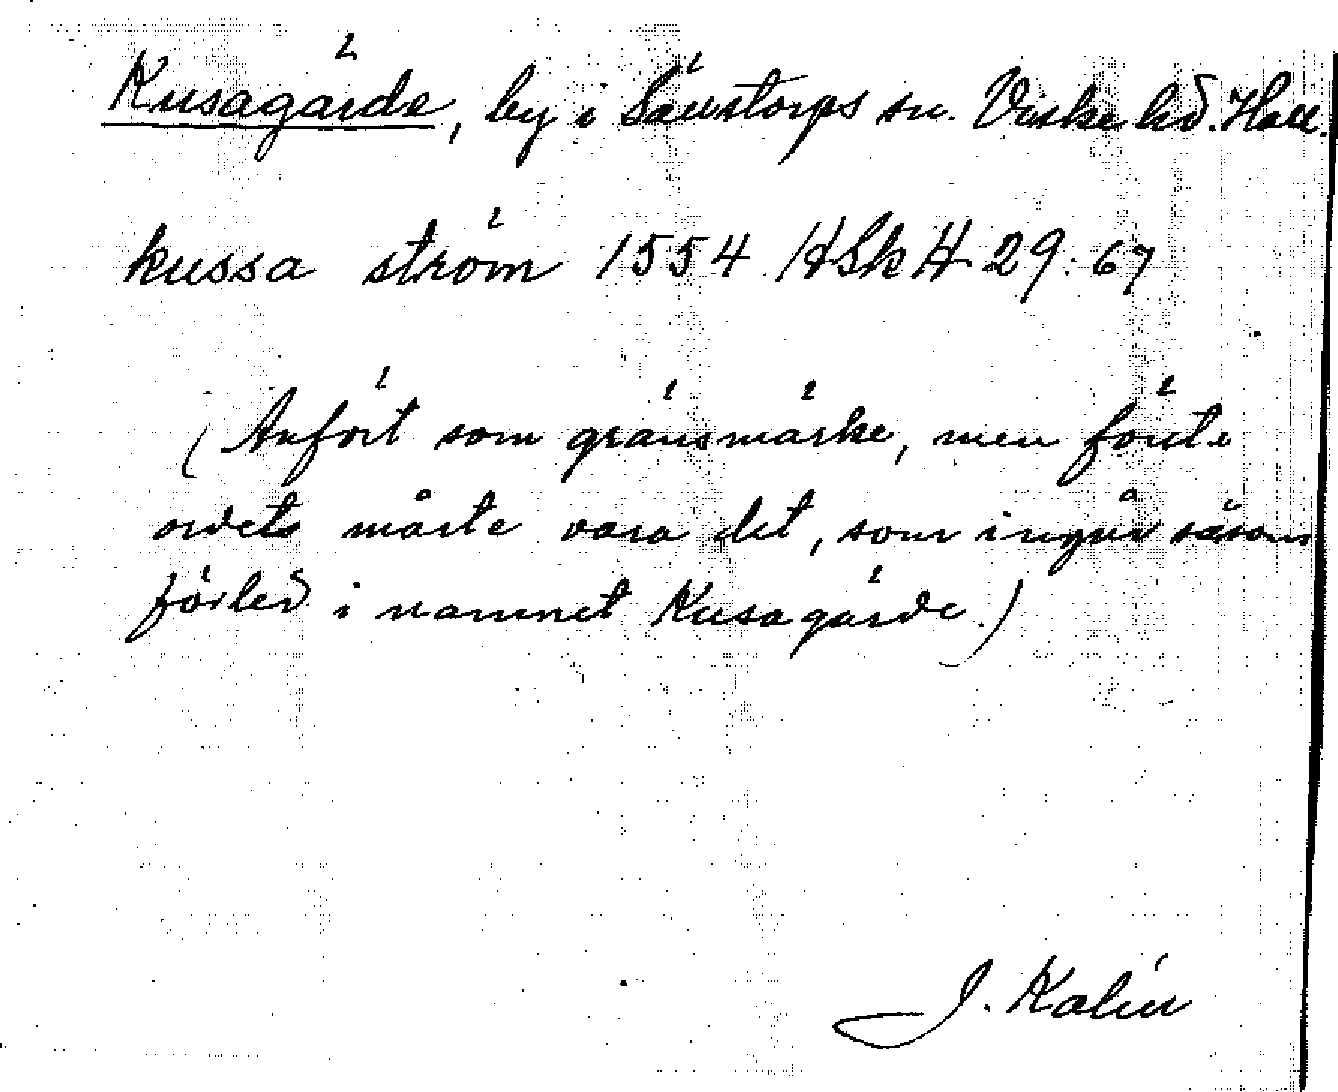 Kusagärde, by i Sällstorps sn. Viske hd. Hall.
kussa ström 1554 HSkH 29:67
(Anfört som gränsmärke, men först-
ordets måste vara det, som ingår såsom
förled i namnet Kusagärde.)
J. Kalén